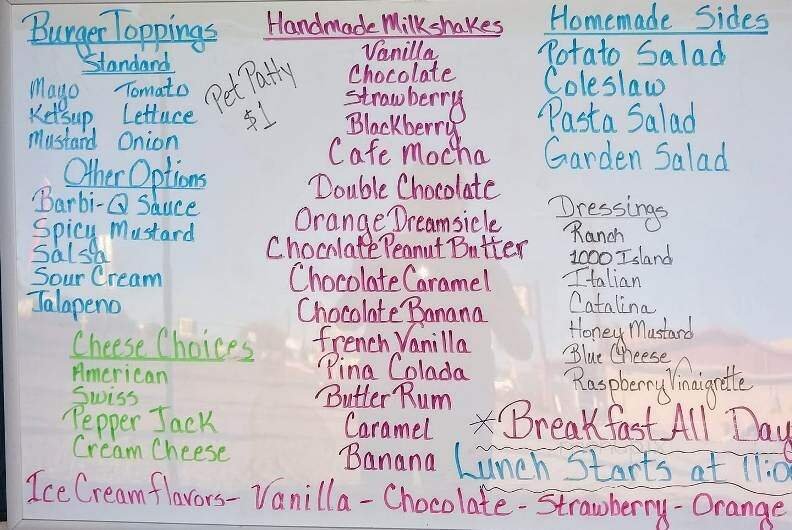 Burger Toppings
Standard
Mayo Tomato
Ketsup Lettuce
Mustard Onion
Other Options
Barbi-Q Sauce
Spicy Mustard
Salsa
Sour Cream
Jalapeno
Cheese Choices
American
Swiss
Pepper Jack
Cream Cheese
Pet Patty
$1
Handmade Milkshakes
Vanilla
Chocolate
Strawberry
Blackberry
Cafe Mocha
Double Chocolate
Orange Dreamsicle
Chocolate Peanut Butter
Chocolate Caramel
Chocolate Banana
French Vanilla
Pina Colada
Butter Rum
Caramel
Banana
Homemade Sides
Potato Salad
Coleslaw
Pasta Salad
Garden Salad
Dressings
Ranch
1000 Island
Italian
Catalina
Honey Mustard
Blue Cheese
Raspberry Vinaigrette
*Breakfast All Day
Lunch Starts at 11:0
Ice Cream flavors- Vanilla - Chocolate - Strawberry - Orange